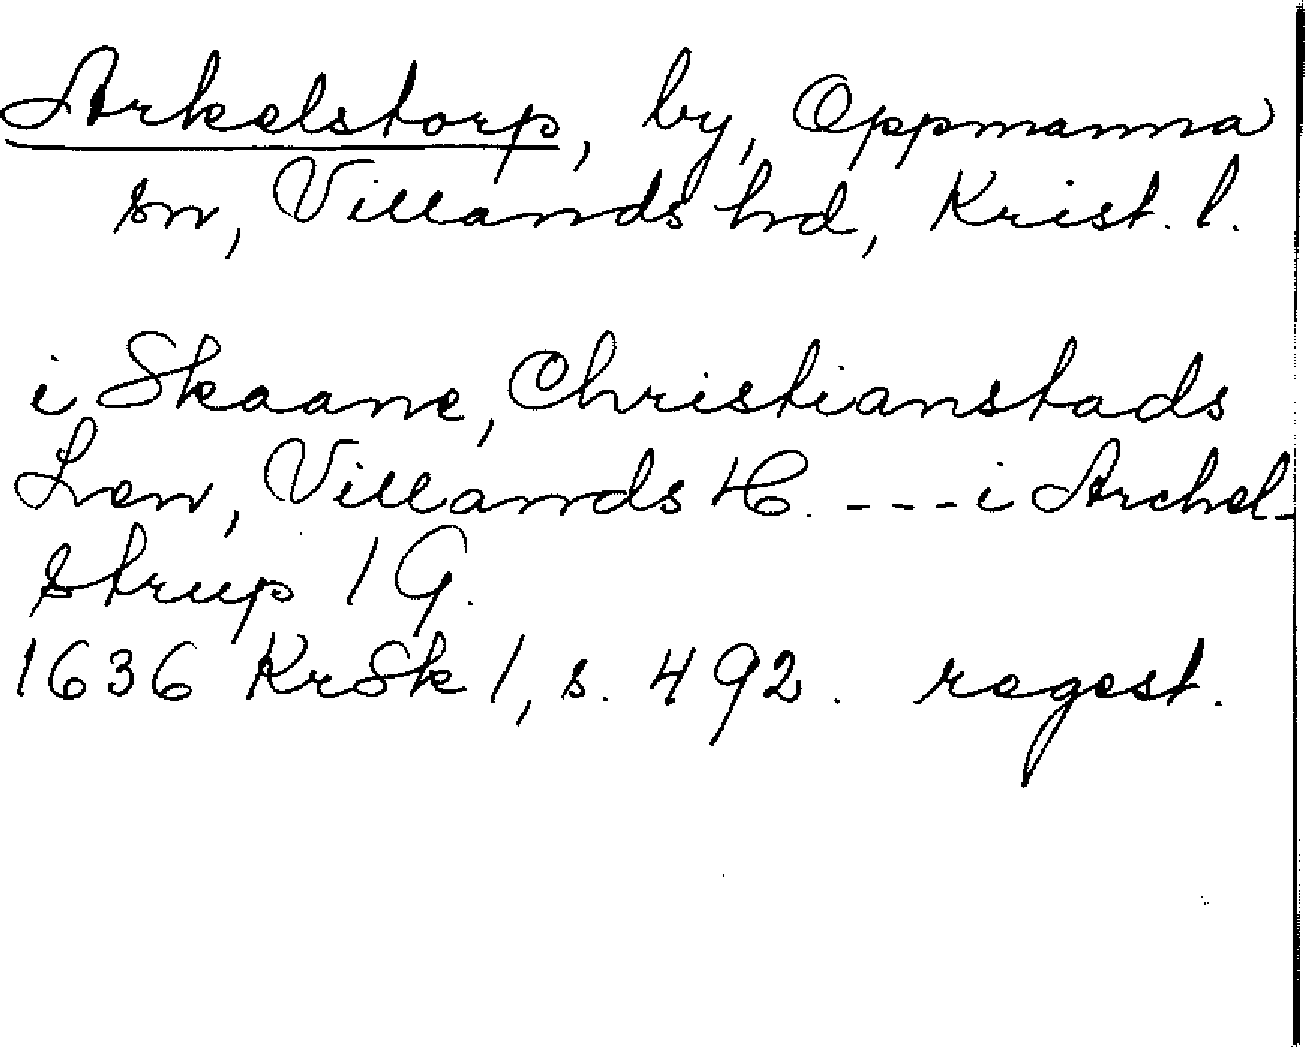 Arkelstorp, by, Oppmanna
sn, Villands hd, Krist. l.
i Skaane, Christianstads
Len, Villands H. --- i Archel-
strup 1 G.
1636 KrSk 1, s. 492. regest.